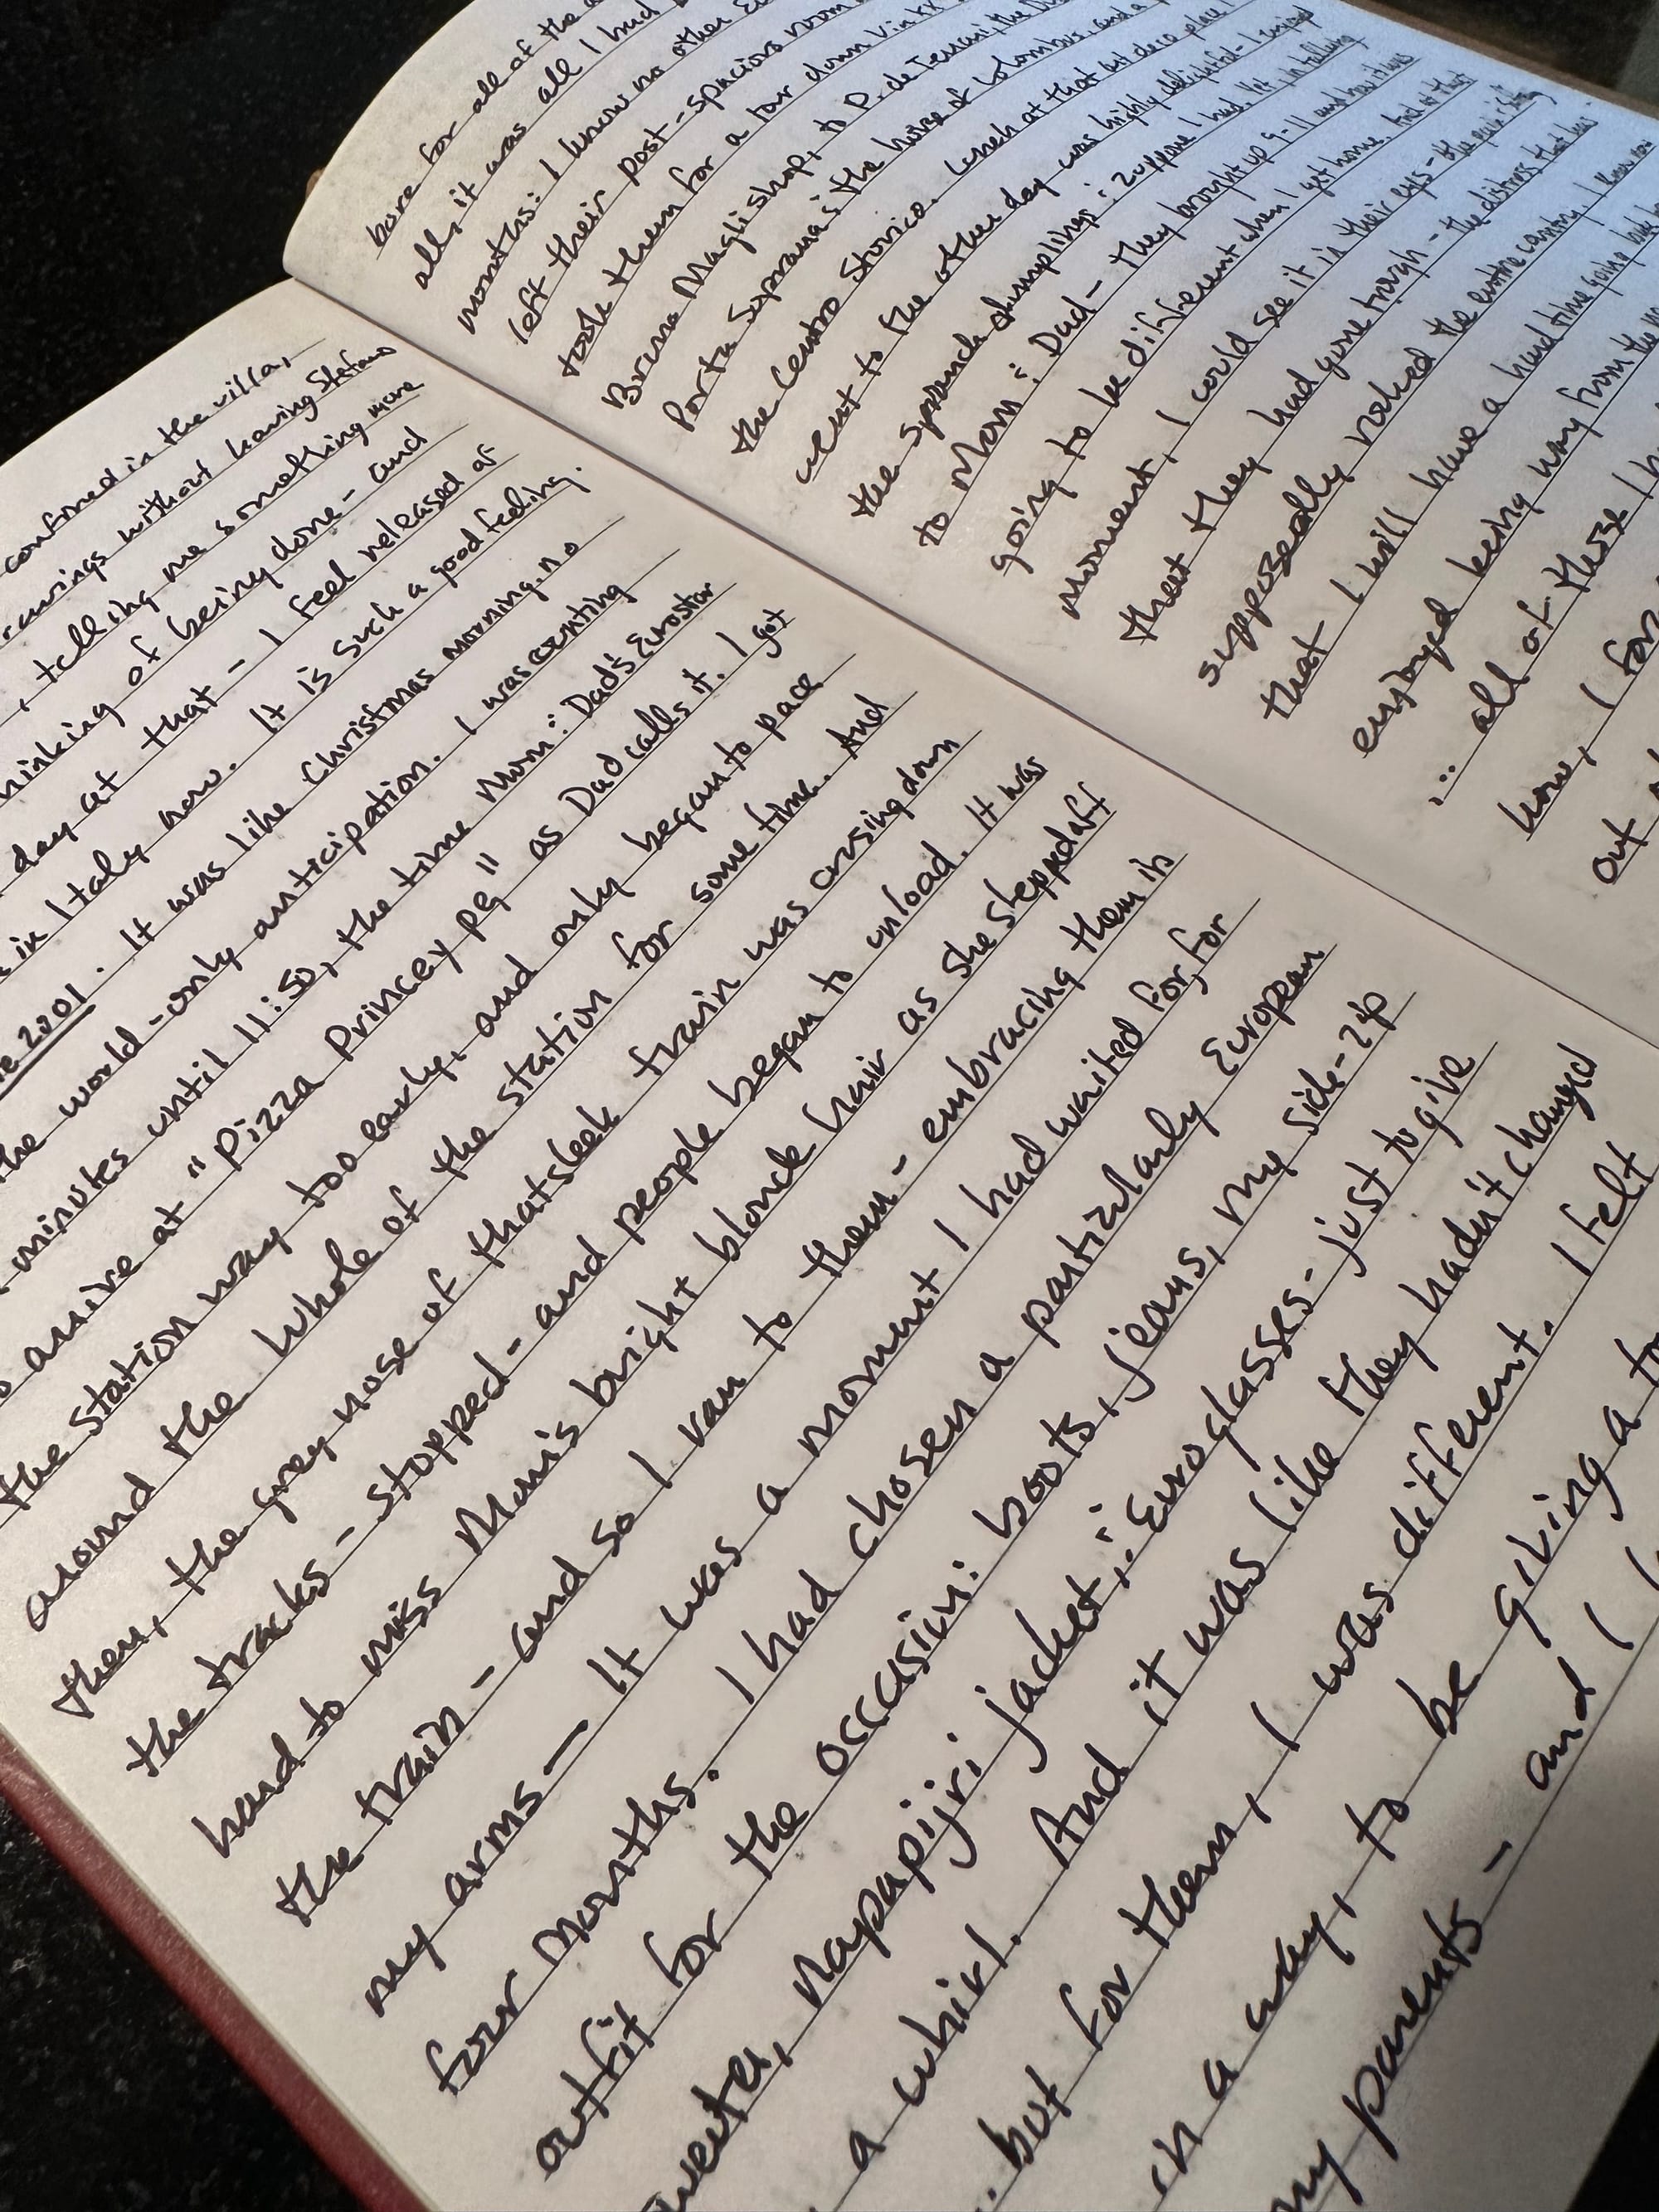 confined in the villa,
without having Stefano
, telling me something more
thinking of being done - and
day at that - I feel released at
in Italy now. It is such a good feeling.
2001. It was like Christmas morning, no
the world - only anticipation. I was counting
minutes until 11:50, the time Mom & Dad's Eurostar
arrive at "Pizza Princey pe" as Dad calls it. I got
the station way too early, and only began to pace
around the whole of the station for some time. And
then, the grey nose of that sleek train was crusing down
the tracks - stopped - and people began to unload. It was
hard to miss Mom's bright blonde hair as she stepped off
the train - and so I ran to them - embracing them in
my arms - It was a moment I had waited for, for
four months. I had chosen a particularly European
outfit for the occasion: boots, jeans, my side-zip
napapijri jacket, & Euroglasses - just to give
a whirl. And it was like they hadn't changed
but for them, I was different. I felt
in a way, to be giving a
my parents - and I
bare for all of the
all, it was all I had
months: I know no other
left their post - spacious room
took them for a tour down Via XX
Bruno Magli shop, to P. de Ferrari, the
Porta Soprana & the house of Colombus, and a
the Centro Storico. Lunch at that art deco place I
went to the other day was highly delightful - I enjoyed
the spinach dumplings & suppose I had. Yet, in talking
to Mom & Dad - they brought up 9-11 and how it was
going to be different when I got home. And at that
moment, I could see it in their eyes - the
that they had gone trough - the distress that has
supposedly rocked the entire cantry. I know now
that I will have a hard time going
enjoyed being way from the
... all of these
know, I
out